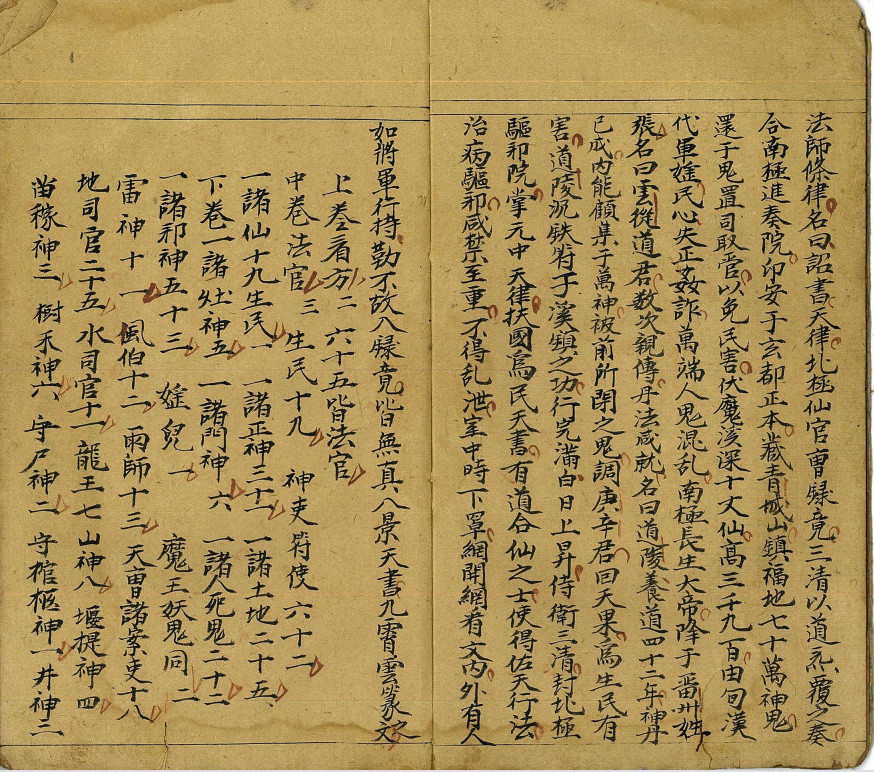 法師條律名曰詔書天律北極仙官曹㝵竟三清以道炁覆之奏
合南極進奏院印安于玄都正本藏青城山鎮福地七十萬神鬼
還于鬼置司取管以免民害伏魔深十丈仙高三千九百由旬漢
代軍婬民心失正姦詐萬端人鬼混乱南極長生大帝降于番州姓
張名曰雲從道君数次親傳丹法咸就名曰道陵養道四十二年神丹
已成内能顧集子萬神被前所閉之鬼調庚辛君曰天果為生民有
害道陵沉鉄符于溪鎮之功行完滿白日上昇侍衛三清封北極
驅邪院掌元中天律扶國為民天書有道合仙之士使得佐天行法
治病驅邪咸禁至重不得乱泄室中時下罩網開網看文内外有人
如將軍行持勒不故入竟皆無真八景天書九霄雲篆文
上卷看方二六十五皆法官
中卷法官三 生民十九 神吏符使六十二
一諸仙十九生民一 一諸正神三十一 一諸土地二十五
下卷一諸灶神五 一諸門神六 一諸人死鬼二十二
一諸邪神五十三 婬兒一 魔王妖鬼同二
雷神十一 風伯十二 雨師十三 天曹諸案吏十八
地司官二十五 水司官十一 龍王七 山神八 堰提神四
苗稼神三 樹禾神六 守尸神二 守棺柩神一 井神二